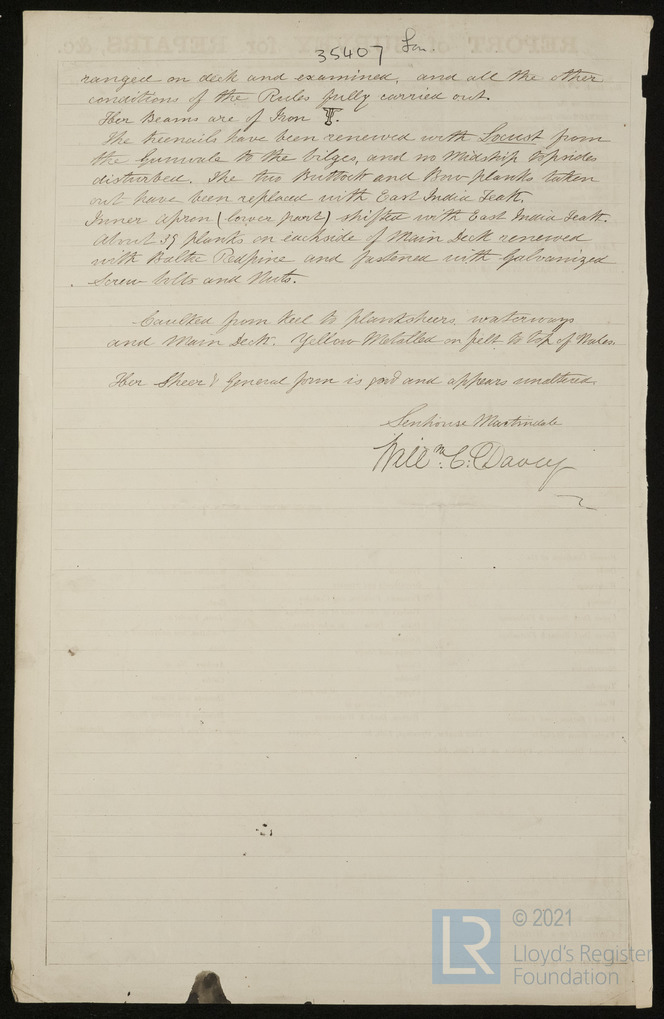 REPORT of SURVEY for REPAIRS, &c.
35407 Lon.
ranged on deck and examined, and all the other
conditions of the Rules fully carried out.
Her Beams are of Iron
The treenails have been renewed with Locust from
the Gunwale to the bilges, and no Midship topsides
disturbed. The two Buttock and Bow planks taken
out have been replaced with East India Teak.
Inner apron (lower part) shifted with East India Teak.
About 39 planks on eachside of Main Deck renewed
with Baltic Redpine and fastened with Galvanized
Screw bolts and Nuts.
Caulked from keel to planksheers, waterways
and Main Deck. Yellow Metalled on felt to top of Wales.
Her Sheer & General form is good and appears unaltered.
Senhouse Martindale
Willm. C. Davey
© 2021
LR
Lloyd's Register
Foundation